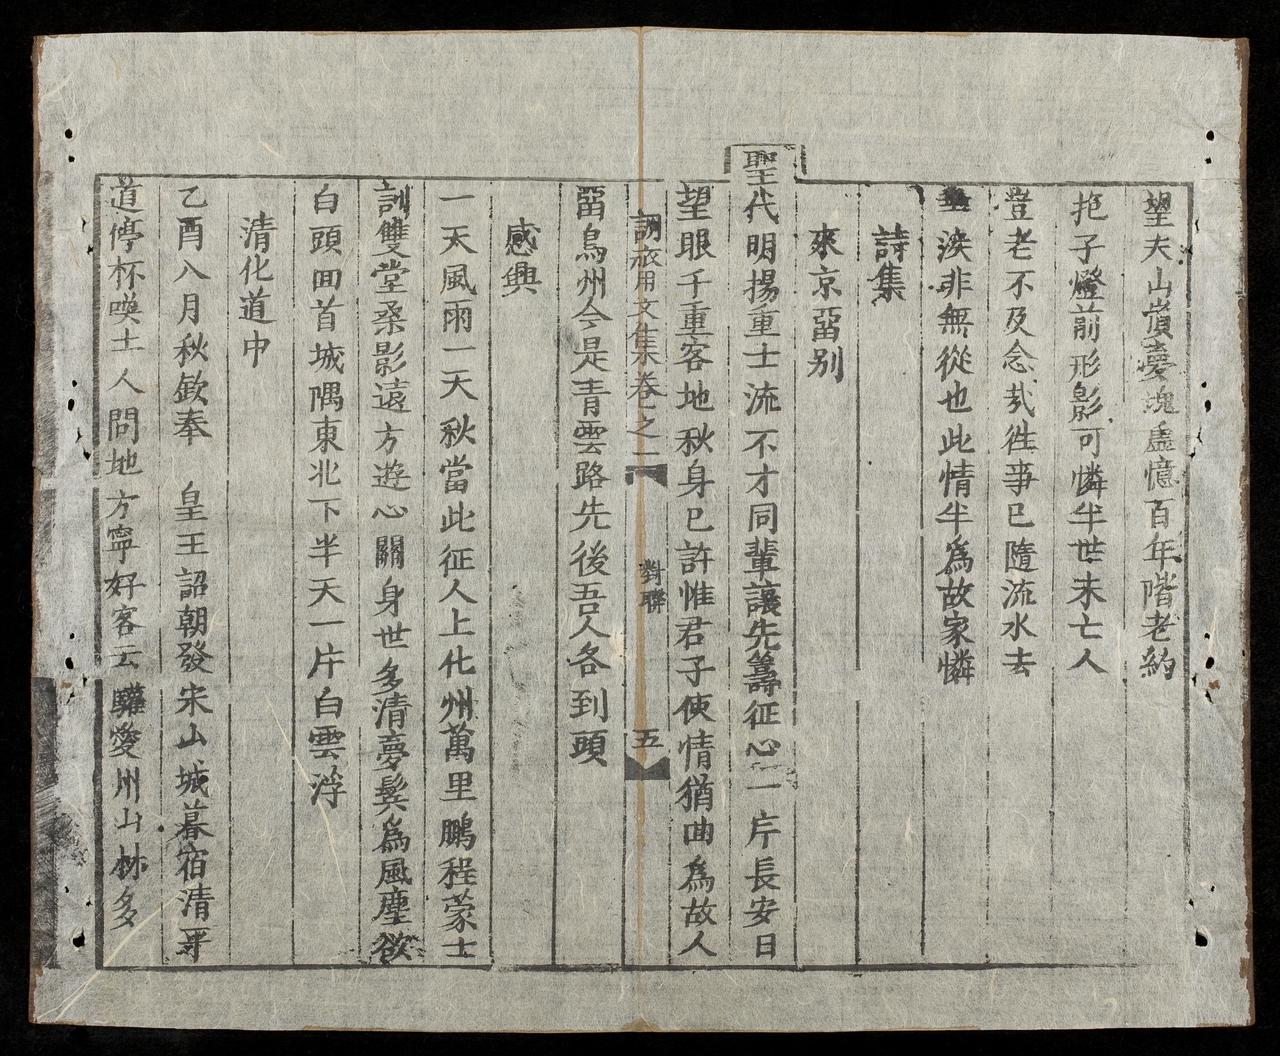 望夫山嶺壹魂盡憶百年階老約
抱子燈前形影可憐半世未亡人
豈老不及念哉徃事已隨流水去
淚非無從也此情半爲故家憐
詩集
來京畱别
聖代明揚重士流不才同輩讓先籌征心一片長安日
望眼千重客地秋身已許惟君子使情猶曲爲故人
畱烏州今是青雲路先後吾人各到頭
感興
一天風雨一天秋當此征人上化州萬里鵬程蒙士
訓雙堂桑影遠方遊心關身世多清夢鬂爲風塵欲
白頭囬首城隅東北下半天一片白雲浮
清化道中
乙酉八月秋欽奉 皇王詔朝發宋山城暮宿清平
道停杯喚土人問地方寧好客云驩愛州山林多
用文集卷之二 對聯 五